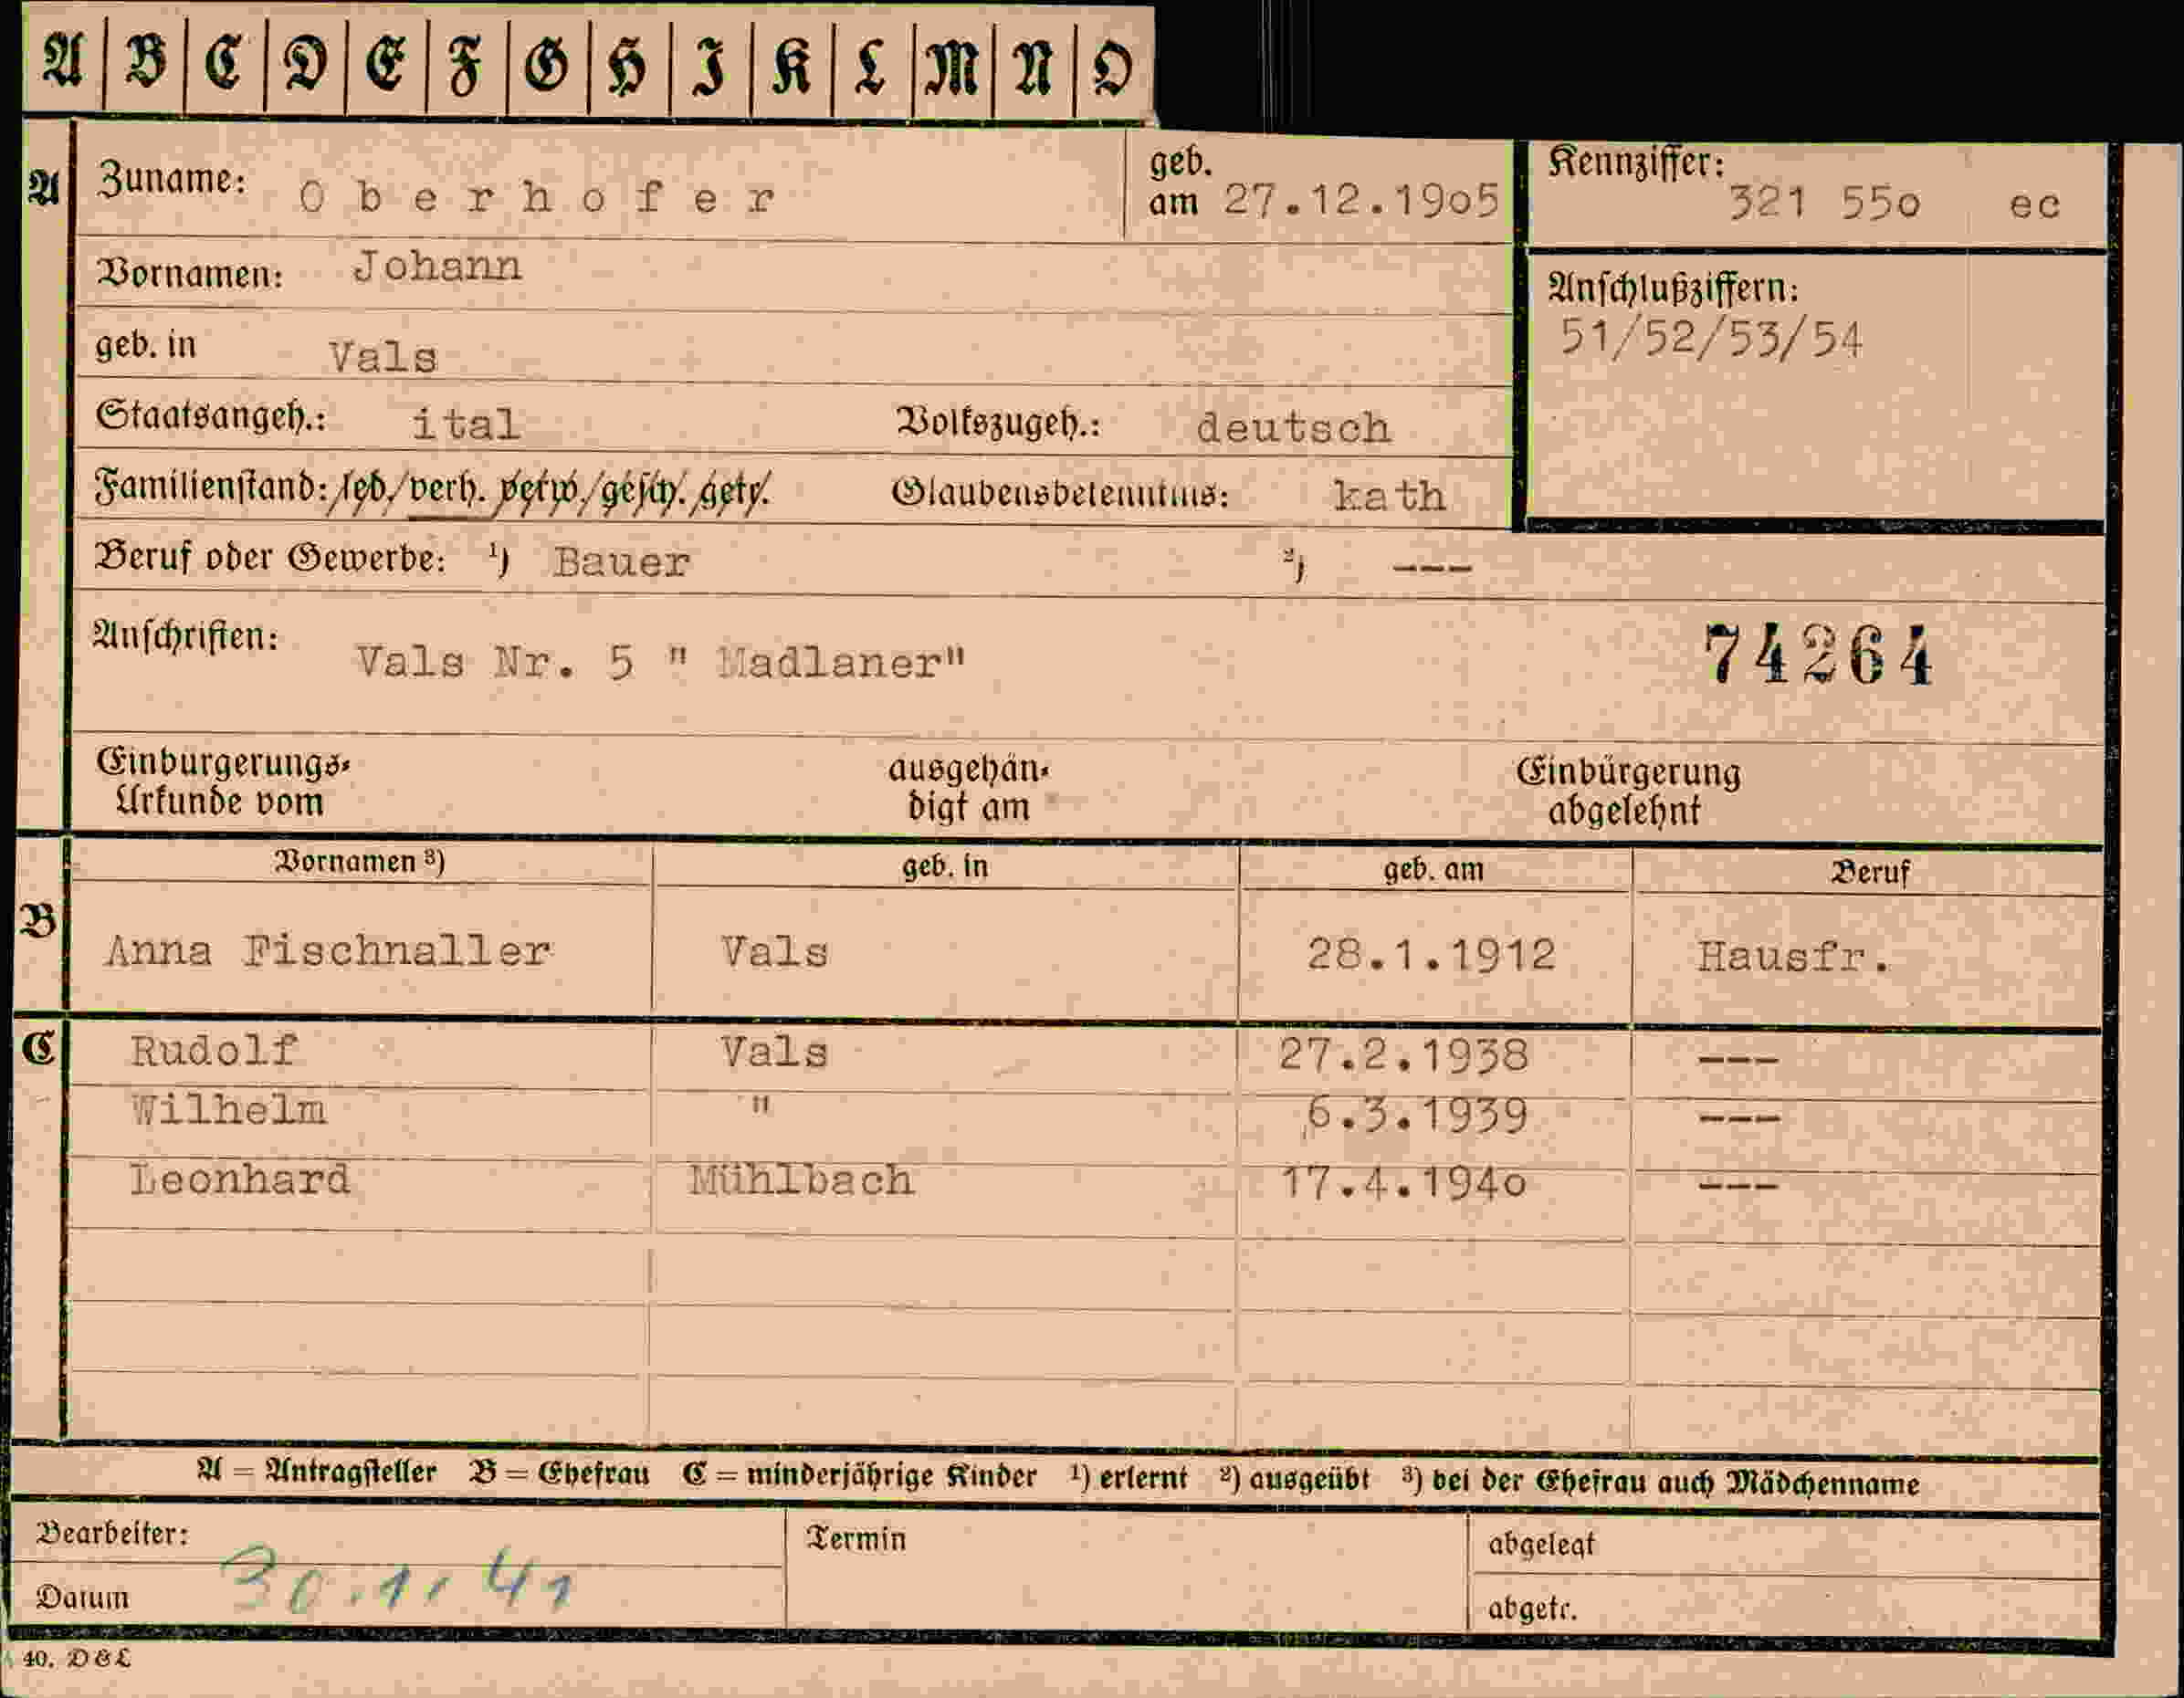 A B C D E F G H I K L M N O
A Zuname: Oberhofer geb. am 27.12.1905 Kennziffer: 321 550 ec
Vornamen: Johann
Anschlußziffern:
51/52/53/54
geb. in Vals
Staatsangeh.: ital Volkszugeh.: deutsch
Familienstand: led./verh. verw./gesch. getr. Glaubensbekenntnis: kath
Beruf oder Gewerbe: ¹) Bauer ²) ---
Anschriften: Vals Nr. 5 " Madlaner" 74264
Einbürgerungs- ausgehän- Einbürgerung
Urkunde vom digt am abgelehnt
Vornamen ³) geb. in geb. am Beruf
B Anna Fischnaller Vals 28.1.1912 Hausfr.
C Rudolf Vals 27.2.1938 ---
Wilhelm " 6.3.1939 ---
Leonhard Mühlbach 17.4.1940 ---
A = Antragsteller B = Ehefrau C = minderjährige Kinder ¹) erlernt ²) ausgeübt ³) bei der Ehefrau auch Mädchenname
Bearbeiter: Termin abgelegt
Datum 30.1.41 abgetr.
40. D&L